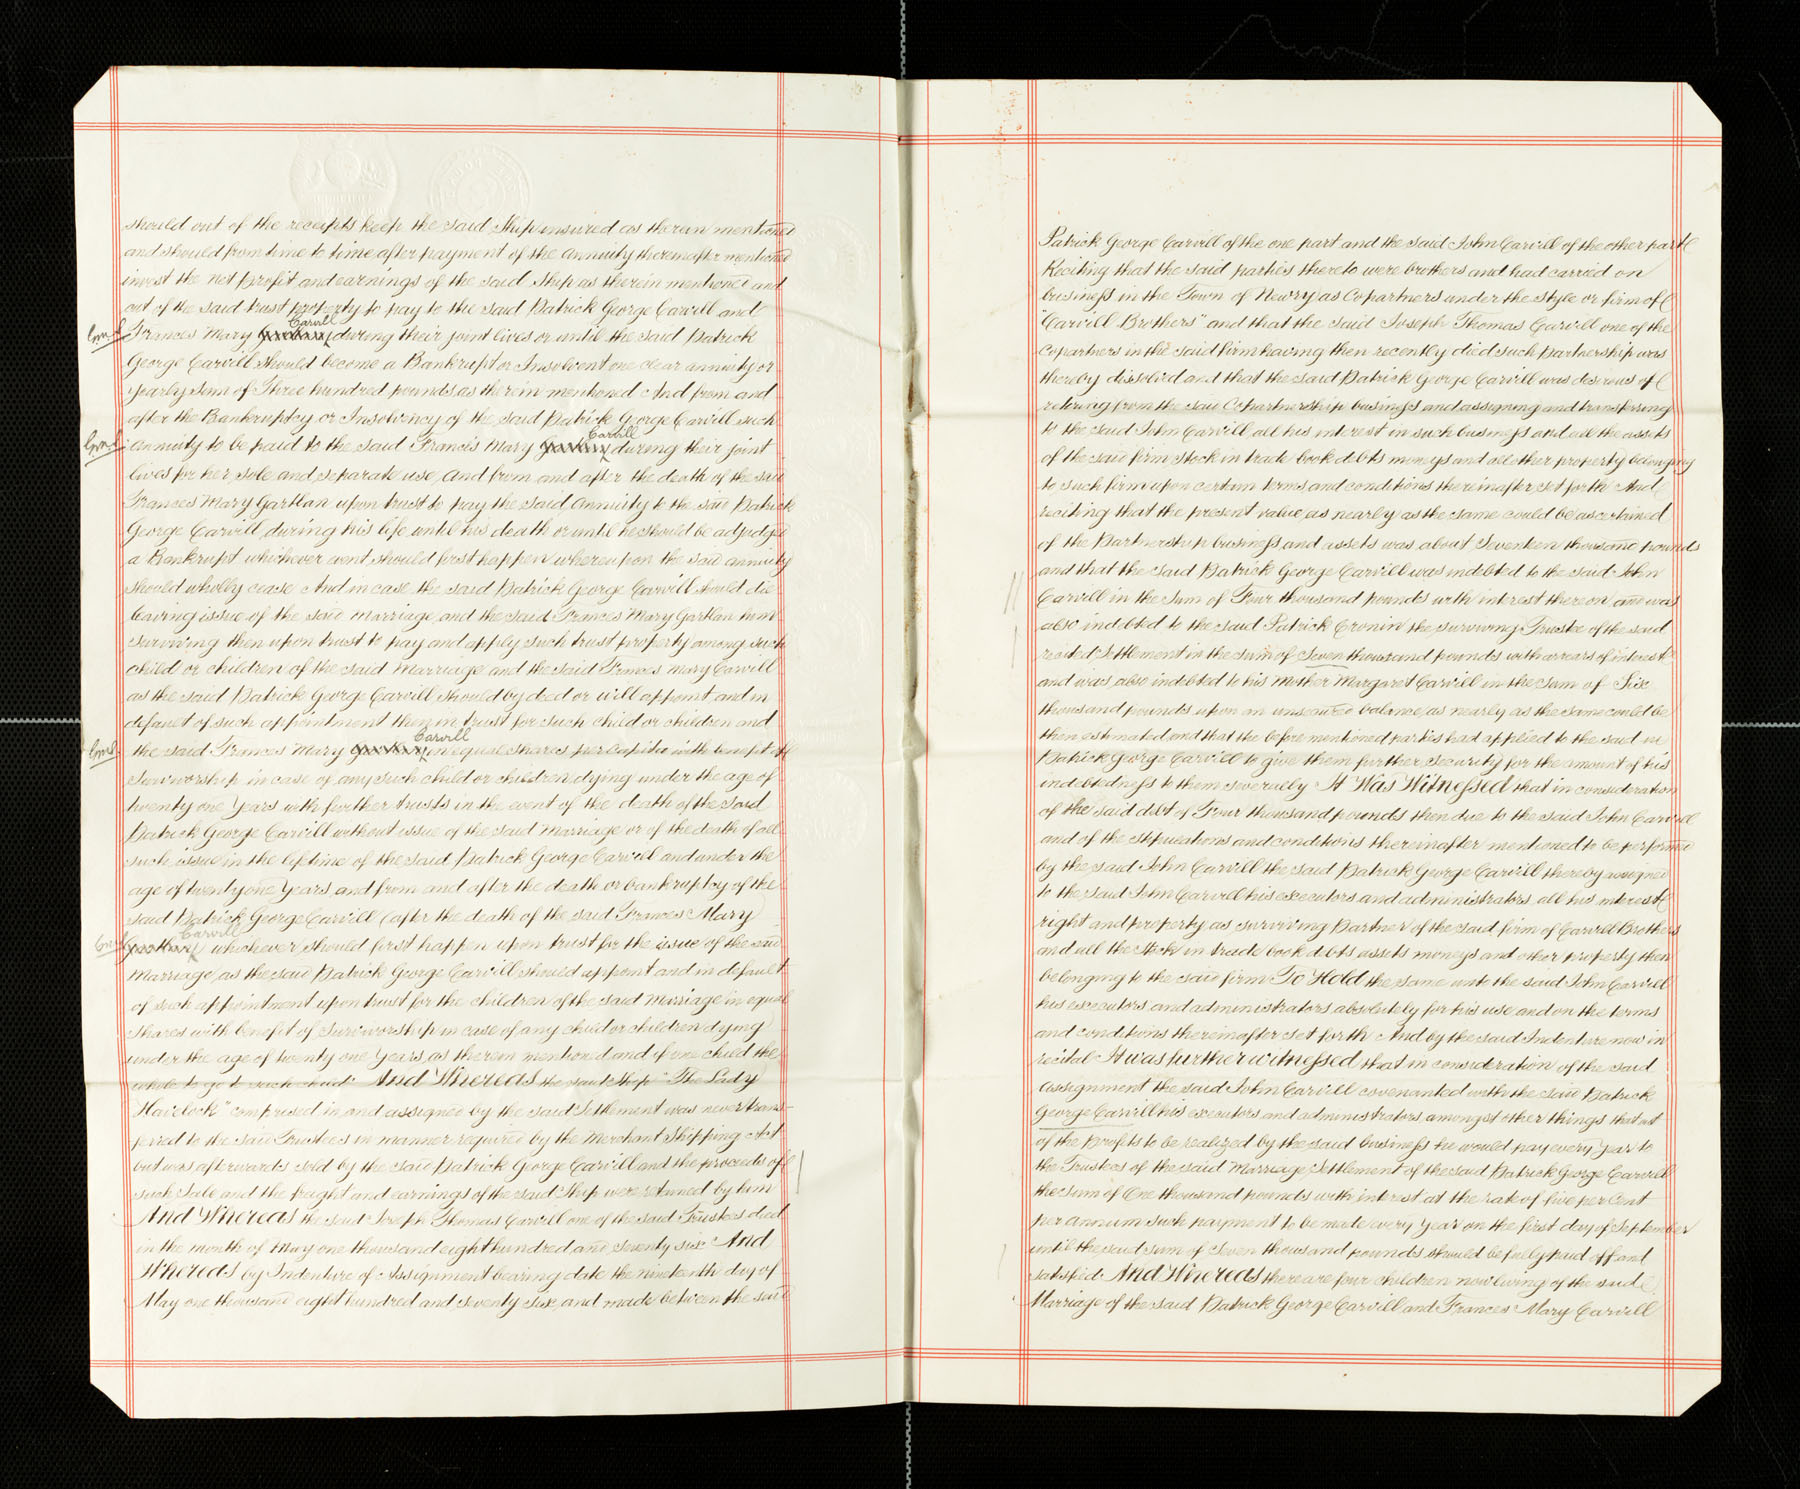 should out of the receipts keep the said Ship insured as therein mentioned
and should from time to time after payment of the annuity thereinafter mentioned
invest the net profit and earnings of the said Ship as therein mentioned and
out of the said trust property to pay to the said Patrick George Carvill and
Carvill
Frances Mary Gartlan during their joint lives or until the said Patrick
George Carvill should become a Bankrupt or Insolvent one clear annuity or
yearly sum of Three hundred pounds as therein mentioned And from and
after the Bankruptcy or Insolvency of the said Patrick George Carvill such
Carvill
annuity to be paid to the said Frances Mary Gartlan during their joint
lives for her sole and separate use and from and after the death of the said
Frances Mary Gartlan upon trust to pay the said annuity to the said Patrick
George Carvill during his life until his death or until he should be adjudged
a Bankrupt whichever event should first happen whereupon the said annuity
should wholly cease And in case the said Patrick George Carvill should die
leaving issue of the said marriage and the said Frances Mary Gartlan him
surviving then upon trust to pay and apply such trust property among such
child or children of the said marriage and the said Frances Mary Carvill
as the said Patrick George Carvill should by deed or will appoint and in
default of such appointment them in trust for such child or children and
Carvill
the said Frances Mary Gartlan in equal shares per capita with benefit of
Survivorship in case of any such child or children dying under the age of
twenty one years with further trusts in the event of the death of the said
Patrick George Carvill without issue of the said marriage or of the death of all
such issue in the lifetime of the said Patrick George Carvill and under the
age of twenty one years and from and after the death or bankruptcy of the
said Patrick George Carvill (after the death of the said Frances Mary
Carvill
Gartlan) whichever should first happen upon trust for the issue of the said
marriage as the said Patrick George Carvill should appoint and in default
of such appointment upon trust for the children of the said marriage in equal
shares with benefit of survivorship in case of any child or children dying
under the age of twenty one years as therein mentioned and if one child the
whole to go to such child And Whereas the said Ship "The Lady
Havelock" comprised in and assigned by the said Settlement was never trans-
ferred to the said Trustees in manner required by the Merchant Shipping Act
but was afterwards sold by the said Patrick George Carvill and the proceeds of
such Sale and the freight and earnings of the said Ship were retained by him
And Whereas the said Joseph Thomas Carvill one of the said Trustees died
in the month of May one thousand eight hundred and seventy six And
Whereas by Indenture of Assignment bearing date the nineteenth day of
May one thousand eight hundred and seventy six and made between the said
Patrick George Carvill of the one part and the said John Carvill of the other part
Reciting that the said parties thereto were brothers and had carried on
business in the Town of Newry as Copartners under the style or firm of
"Carvill Brothers" and that the said Joseph Thomas Carvill one of the
Copartners in the said firm having then recently died such partnership was
thereby dissolved and that the said Patrick George Carvill was desirous of
retiring from the said Copartnership business and assigning and transferring
to the said John Carvill all his interest in such business and all the assets
of the said firm stock in trade book debts moneys and all other property belonging
to such firm upon certain terms and conditions thereinafter set forth And
reciting that the present value as nearly as the same could be ascertained
of the Partnership business and assets was about Seventeen thousand pounds
and that the said Patrick George Carvill was indebted to the said John
Carvill in the sum of Four thousand pounds with interest thereon and was
also indebted to the said Patrick Cronin the surviving Trustee of the said
recited Settlement in the sum of Seven thousand pounds with arrears of interest
and was also indebted to his Mother Margaret Carvill in the sum of Six
thousand pounds upon an unsecured balance as nearly as the same could be
then estimated and that the before mentioned parties had applied to the said
Patrick George Carvill to give them further security for the amount of his
indebtedness to them severally It Was Witnessed that in consideration
of the said debt of Four thousand pounds then due to the said John Carvill
and of the stipulations and conditions thereinafter mentioned to be performed
by the said John Carvill the said Patrick George Carvill thereby assigned
to the said John Carvill his executors and administrators all his interest
right and property as surviving Partner of the said firm of Carvill Brothers
and all the Stock in trade book debts assets moneys and other property then
belonging to the said firm To Hold the same unto the said John Carvill
his executors and administrators absolutely for his use and on the terms
and conditions thereinafter set forth And by the said Indenture now in
recital It was further witnessed that in consideration of the said
assignment the said John Carvill covenanted with the said Patrick
George Carvill his executors and administrators amongst other things that out
of the Profits to be realized by the said business he would pay every year to
the Trustees of the said Marriage Settlement of the said Patrick George Carvill
the sum of One thousand pounds with interest at the rate of five per Cent
per annum such payment to be made every year on the first day of September
until the said sum of Seven thousand pounds should be fully paid off and
satisfied And Whereas there are four children now living of the said
Marriage of the said Patrick George Carvill and Frances Mary Carvill